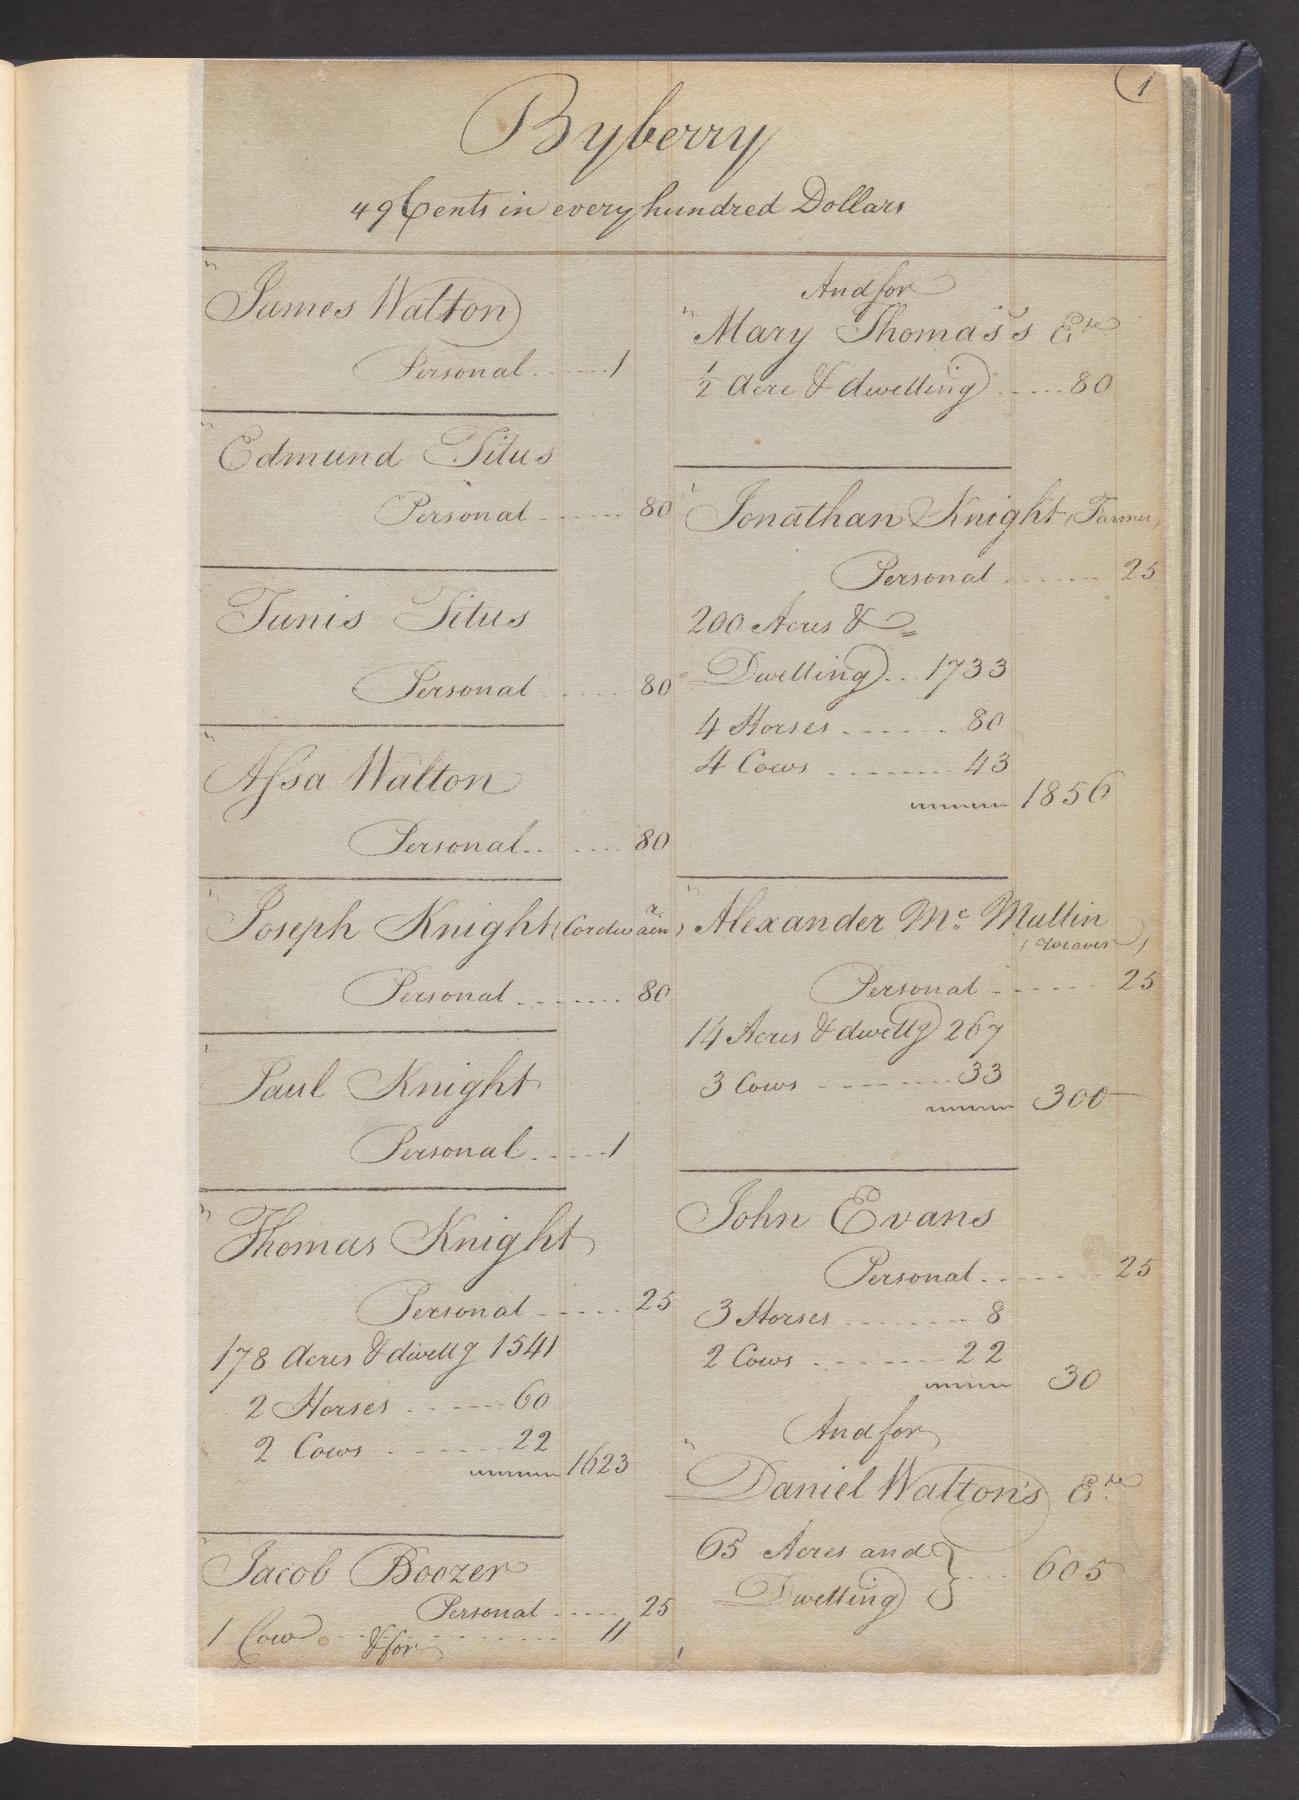 1
Byberry
49 Cents in every hundred Dollars
James Walton
Personal 1
Edmund Titus
Personal 80
Tunis Titus
Personal 80
Assa Walton
Personal 80
Joseph Knight (Cordwainr)
Personal 80
Paul Knight
Personal 1
Thomas Knight
Personal 25
178 Acres & dwellg 1541
2 Horses 60
2 Cows 22
1623
Jacob Boozer
Personal 25
1 Cow 11
& for
And for
Mary Thomas's Este
1/2 Acre & dwelling 80
Jonathan Knight (Farmer)
Personal 25
200 Acres & =
Dwelling 1733
4 Horses 80
4 Cows 43
1856
Alexander Mc Mullin
(Weaver)
Personal 25
14 Acres & dwellg 267
3 Cows 33
300
John Evans
Personal 25
3 Horses 8
2 Cows 22
30
And for
Daniel Walton's Este
65 Acres and
Dwelling } 605